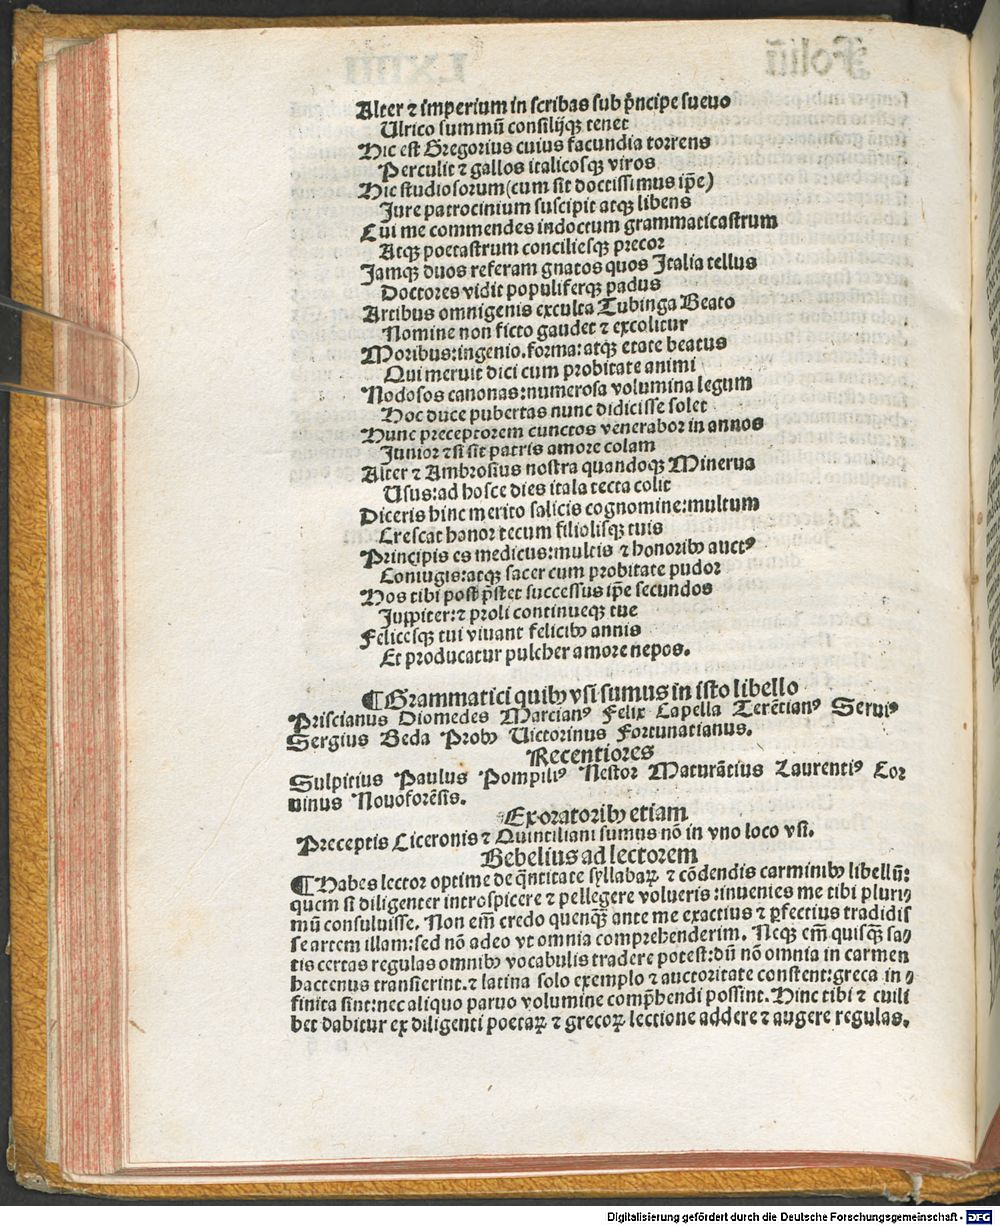 Alter ⁊ imperium in scribas sub p̄ncipe sueuo
Ulrico summū consilijq; tenet
Hic est Gregorius cuius facundia torrens
Perculit ⁊ gallos italicosq; viros
Hic studiosorum (cum sit doctissimus ip̄e)
Jure patrocinium suscipit atq; libens
Cui me commendes indoctum grammaticastrum
Atq; poetastrum conciliesq; precor
Jamq; duos referam gnatos quos Italia tellus
Doctores vidit populiferq; padus
Artibus omnigenis exculta Tubinga Beato
Nomine non ficto gaudet ⁊ excolitur
Moribus: ingenio. forma: atq; etate beatus
Qui meruit dici cum probitate animi
Nodosos canonas: numerosa volumina legum
Hoc duce pubertas nunc didicisse solet
Hunc preceptorem cunctos venerabor in annos
Junior ⁊ si sit patris amore colam
Alter ⁊ Ambrosius nostra quandoq; Minerua
Usus: ad hosce dies itala tecta colit
Diceris hinc merito salicis cognomine: multum
Crescat honor tecum filiolisq; tuis
Principis es medicus: multis ⁊ honoribꝫ auctꝰ
Coniugis: atq; sacer cum probitate pudor
Hos tibi post p̄stet successus ip̄e secundos
Juppiter: ⁊ proli continueq; tue
Felicesq; tui viuant felicibꝫ annis
Et producatur pulcher amore nepos.
¶ Grammatici quibꝫ vsi sumus in isto libello
Priscianus Diomedes Marcianꝰ Felix Capella Terētianꝰ Seruiꝰ
Sergius Beda Probꝫ Uictorinus Fortunatianus.
Recentiores
Sulpitius Paulus Pompiliꝰ Nestor Maturātius Laurentiꝰ Cor
uinus Nouoforēsis.
Ex oratoribꝫ etiam
Preceptis Ciceronis ⁊ Quintiliani sumus nō in vno loco vsi.
Bebelius ad lectorem
¶ Habes lector optime de q̄ntitate syllabaꝝ ⁊ cōdendis carminibꝫ libellū:
quem si diligenter introspicere ⁊ pellegere volueris: inuenies me tibi pluri⸗
mū consuluisse. Non em̄ credo quenq̄ȝ ante me exactius ⁊ ꝑfectius tradidis
se artem illam: sed nō adeo vt omnia comprehenderim. Neq; em̄ quisq̄ȝ sa⸗
tis certas regulas omnibꝫ vocabulis tradere potest: dū nō omnia in carmen
hactenus transierint. ⁊ latina solo exemplo ⁊ auctoritate constent: greca in⸗
finita sint: nec aliquo paruo volumine comp̄hendi possint. Hinc tibi ⁊ cuili
bet dabitur ex diligenti poetaꝝ ⁊ grecoꝝ lectione addere ⁊ augere regulas.
Digitalisierung gefördert durch die Deutsche Forschungsgemeinschaft - DFG